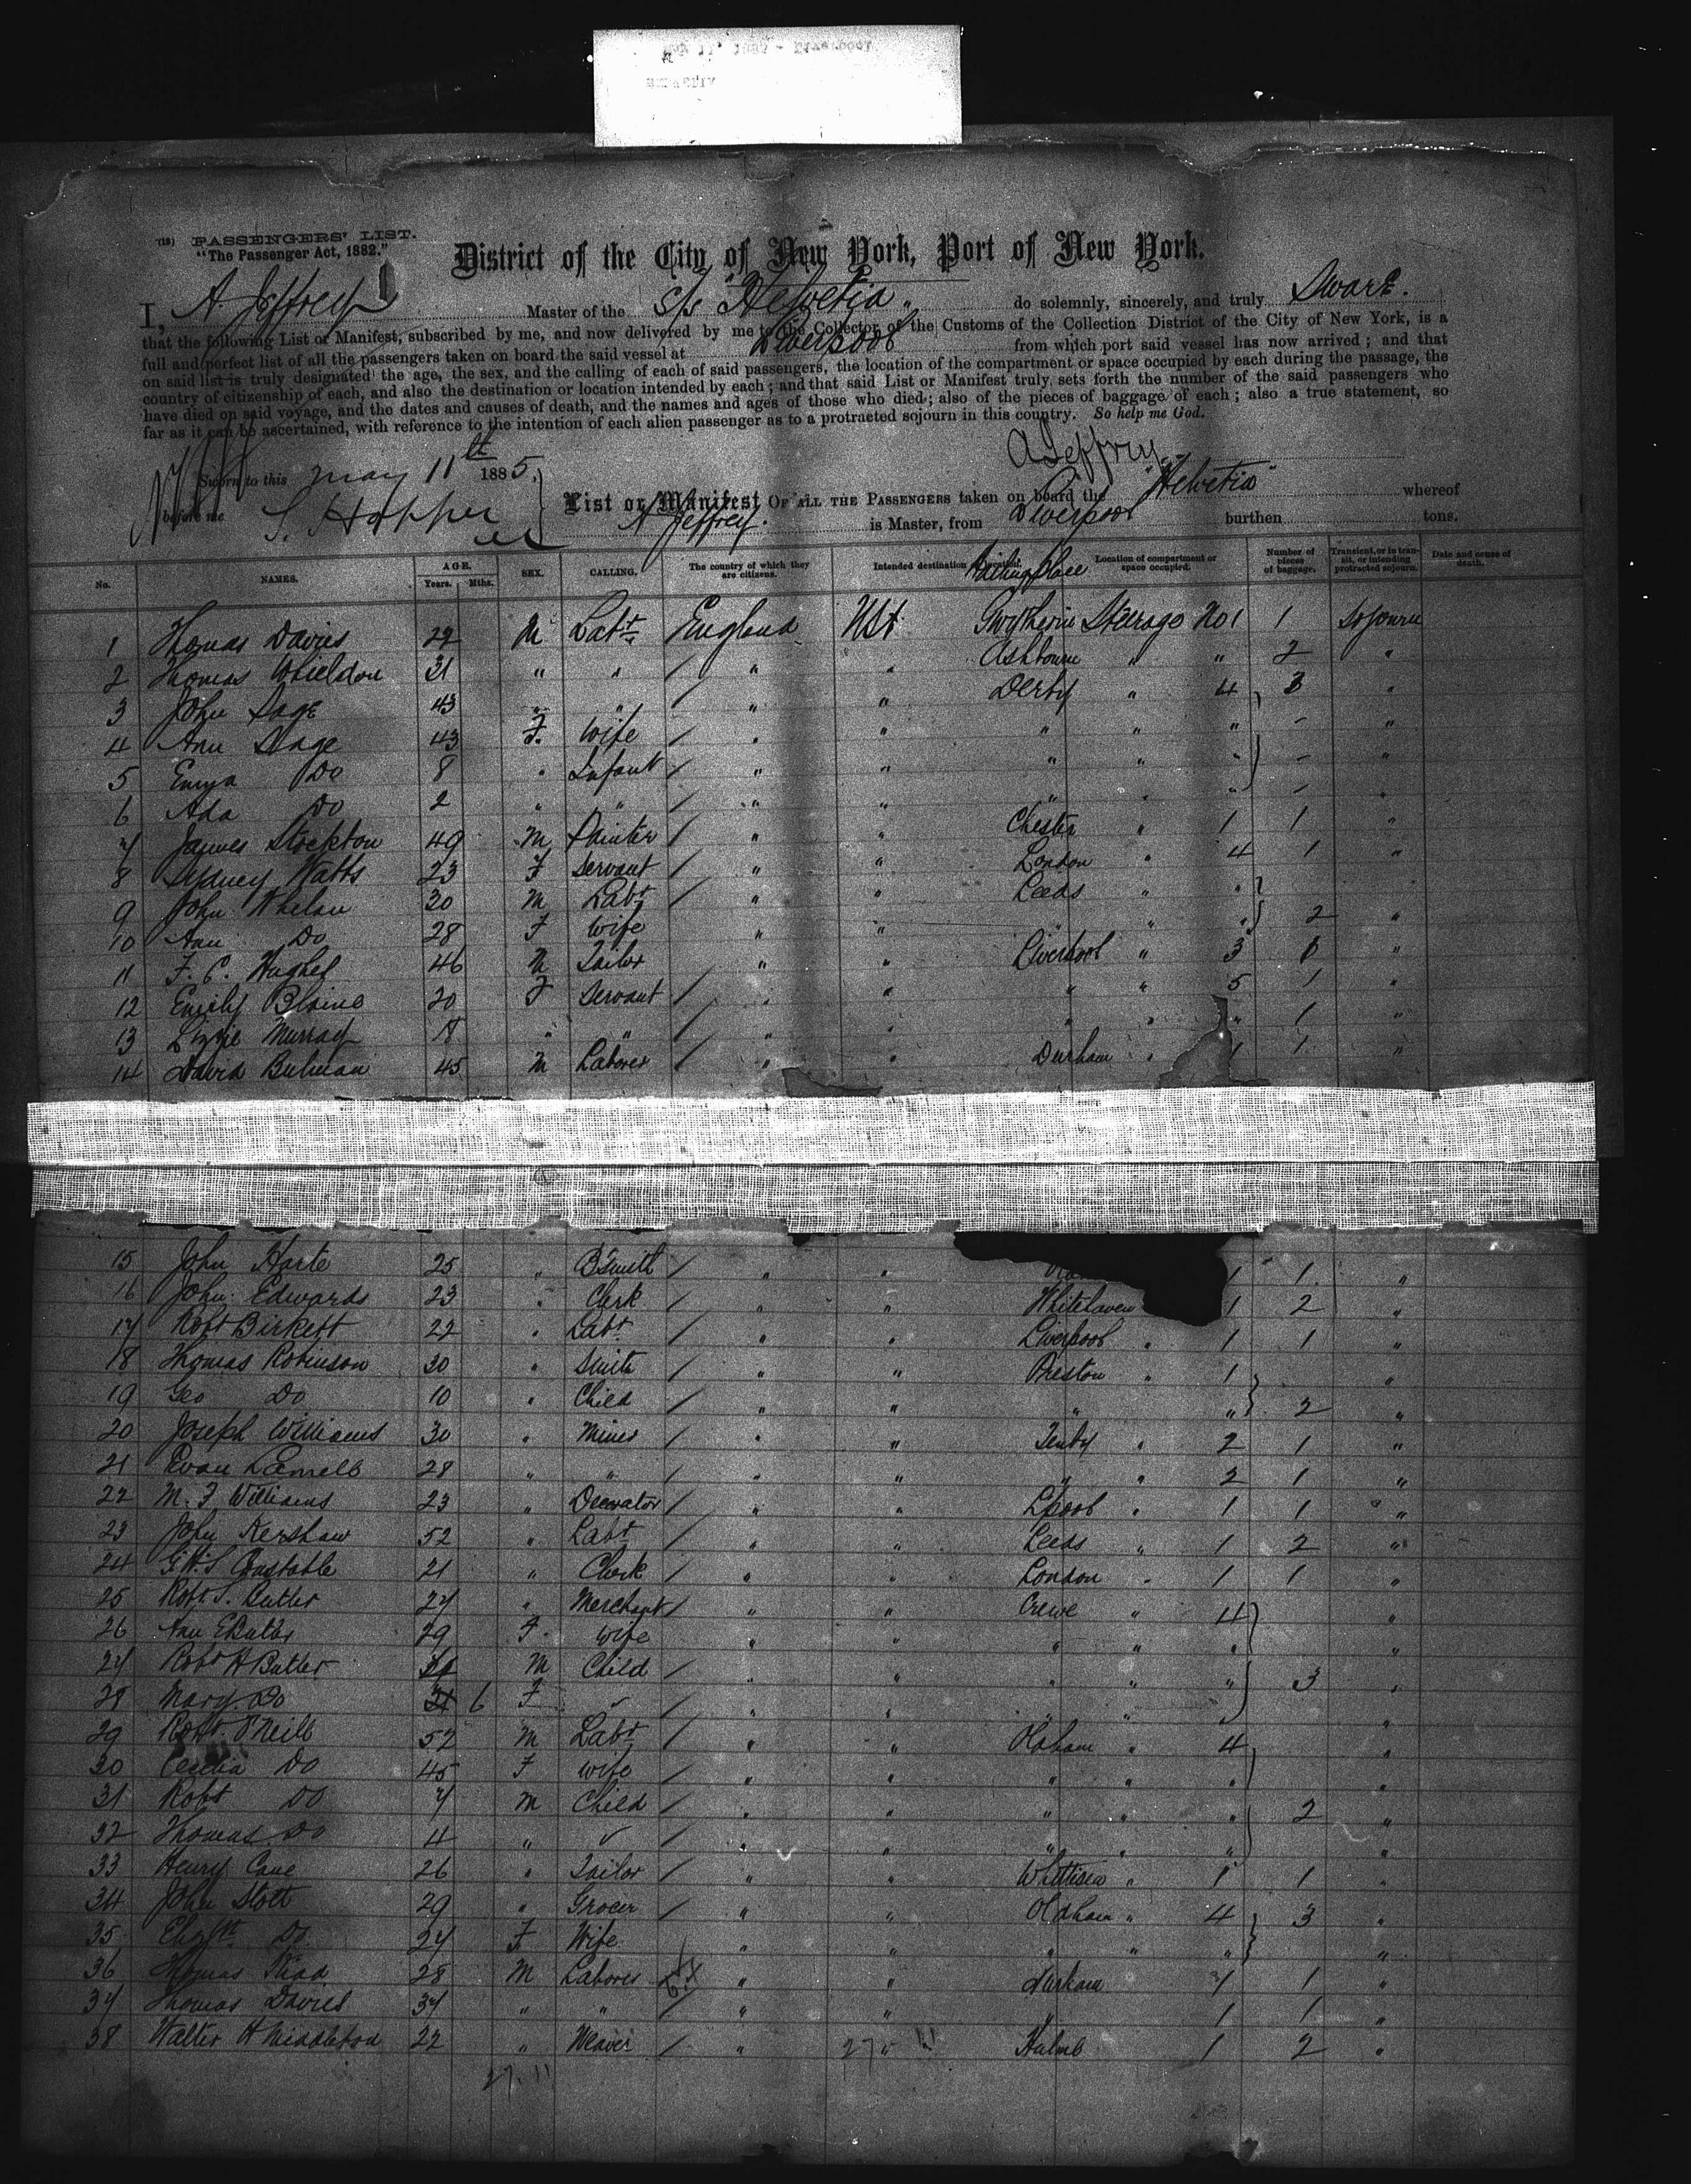 (18) PASSENGERS' LIST.
"The Passenger Act, 1882."
District of the City of New York, Port of New York.
I, A Jeffrey Master of the s/s "Helvetia" do solemnly, sincerely, and truly Swear.
that the following List or Manifest, subscribed by me, and now delivered by me to the Collector of the Customs of the Collection District of the City of New York, is a
full and perfect list of all the passengers taken on board the said vessel at Liverpool from which port said vessel has now arrived; and that
on said list is truly designated the age, the sex, and the calling of each of said passengers, the location of the compartment or space occupied by each during the passage, the
country of citizenship of each, and also the destination or location intended by each; and that said List or Manifest truly sets forth the number of the said passengers who
have died on said voyage, and the dates and causes of death, and the names and ages of those who died; also of the pieces of baggage of each; also a true statement, so
far as it can be ascertained, with reference to the intention of each alien passenger as to a protracted sojourn in this country. So help me God.
A Jeffrey
Sworn to this May 11th 1885.
before me S. Hopper
List or Manifest OF ALL THE PASSENGERS taken on board the "Helvetia" whereof
A Jeffrey. is Master, from Liverpool burthen tons.
No. NAMES. AGE. Years. Mths. SEX. CALLING. The country of which they are citizens. Intended destination Location of compartment or space occupied. Number of pieces of baggage. Transient, or in transit, or intending protracted sojourn. Date and cause of death.
1 Thomas Davies 22 M Labr England USt Gwytherin Steerage No 1 1 Sojourn
2 Thomas Whieldon 31 " " / " " Ashbourn " " 2 "
3 John Sage 43 " " / " " Derby " 4 3 "
4 Ann Sage 43 F. Wife / " " " " " - "
5 Emma Do 8 " Infant / " " " " " - "
6 Ada Do 2 " " / " " " " " - "
7 James Stockton 49 M Painter / " " Chester " 1 1 "
8 Sydney Watts 23 F Servant / " " London " 4 1 "
9 John Whelan 30 M Labr / " " Leeds " "
10 Ann Do 28 F Wife " " " " " 2 "
11 F. C. Hughes 46 M Tailor " " Liverpool " 3 1 "
12 Emily Blaine 20 F Servant / " " " " 5 1 "
13 Lizzie Murray 18 " " / " " " " 1 "
14 David Bulman 45 M Laborer / " " Durham " 1 1 "
15 John Harte 25 " B'Smith / " " 1 1 "
16 John Edwards 23 " Clerk / " " Whitehaven 1 2 "
17 Robt Birkett 22 " Labr / " " Liverpool " 1 1 "
18 Thomas Robinson 30 " Smith / " " Preston " 1 "
19 Geo Do 10 " Child / " " " " 2 "
20 Joseph Williams 30 " Miner / " " Tenby " 2 1 "
21 Evan 28 " " / " " " " 2 1 "
22 M. J Williams 23 " Decorator / " " Lpool " 1 1 "
23 John Kershaw 52 " Labr / " " Leeds " 1 2 "
24 G.W.S Constable 21 " Clerk / " " London " 1 1 "
25 Robt S. Butler 27 " Merchant / " " Crewe " 4 "
26 Ann E Butler 29 F. Wife " " " " " "
27 Robt H Butler M Child / " " " " " 3 "
28 Mary Do 6 F " / " " " " "
29 Robt O'Neill 52 M Labr " " Oldham " 4 "
30 Cecelia Do 45 F Wife " " " " " "
31 Robt Do 7 M Child / " " " " " 2 "
32 Thomas Do 4 " " / " " " " " "
33 Henry Cane 26 " Tailor / " " " 1 1 "
34 John Stott 29 " Grocer / " " Oldham " 4 3 "
35 Elizth Do. 24 F Wife " " " " " "
36 Thomas 28 M Laborer " " Durham 1 1 "
37 Thomas Davies 37 " " / " " " 1 1 "
38 Walter H Middleton 22 " Weaver / " " Hulme 1 2 "